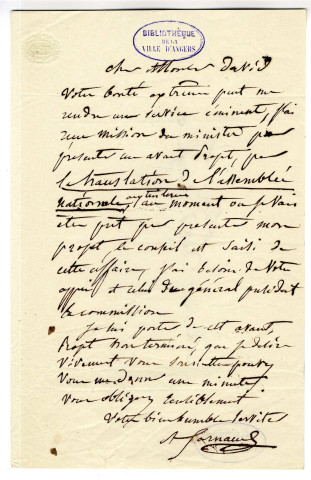 BIBLIOTHÈQUE
DE LA
VILLE D'ANGERS
cher Monsieur David
Votre bonté extrême peut me
rendre un service éminent, j'ai
reçu mission du ministre pr
présenter un avant projet, pr
la translation de l'assemblée
nationale, au moment où je vais
être prêt pr présenter mon
projet le conseil est saisi de
cette affaire, j'ai besoin de votre
appui et celui du général président
la commission
Je suis porteur de cet avant
projet non terminé, que je désire
vivement vous soumettre
vous me donner une minute
vous obligerez
Votre bien humble servite